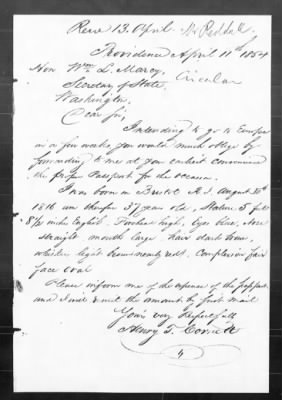 Recd 13. April Mr Reddall
Providence April 11th 1854
Hon Wm L. Marcy, Circular
Secretary of State,
Washington,
Dear Sir,
Intending to go to Europe
in a few weeks, you would much oblige by
forwarding to me at your earliest convenience
the proper Passport for the occasion.
I was born in Bristol R.I. August
1816 am therefore 37 years old, Stature 5 feet
8 1/2 inches English. Forehead high, Eyes blue, Nose
straight mouth large hair dark brown,
whiskers light brown Complexion fair
face oval
Please inform me of the expense of the passport
and I will remit the amount by first mail
Yours very Respectfully
Henry T.
4